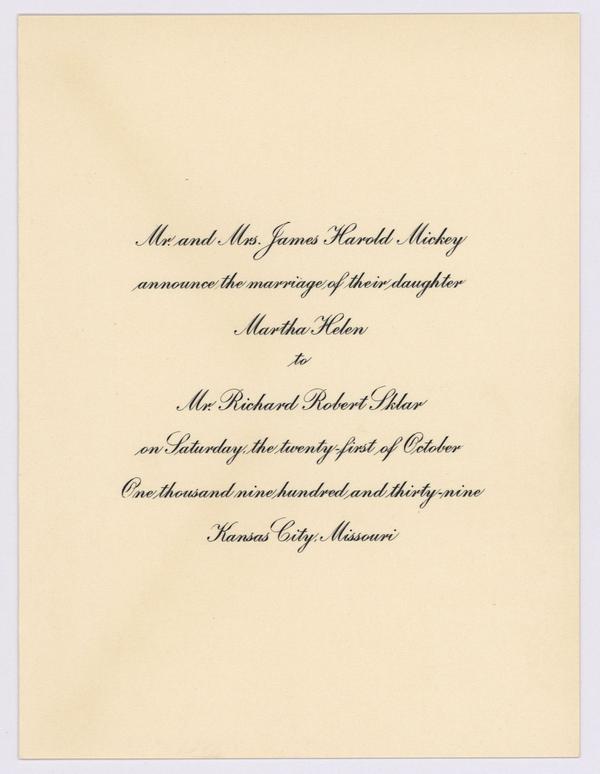 Mr. and Mrs. James Harold Mickey
announce the marriage of their daughter
Martha Helen
to
Mr. Richard Robert Sklar
on Saturday, the twenty-first of October
One thousand nine hundred and thirty-nine
Kansas City, Missouri